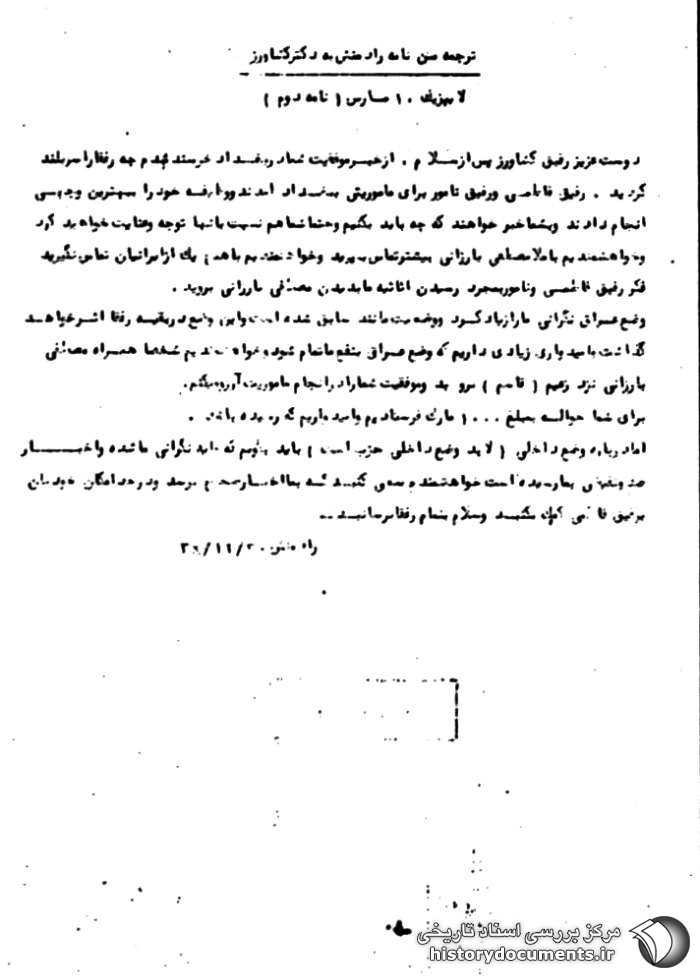 ترجمه متن نامه رادمنش به دکتر کشاورز
لایپزیک ۱۰ مارس ( نامه دوم )
دوست عزیز رفیق کشاورز پس از سلام . از خبر موفقیت شما در بغداد خرسند شدم چه رفقا را سربلند
کردید . رفیق قاضی و رفیق نامور برای ماموریتی ببغداد آمدند و وظیفه خود را ببهترین وجهی
انجام دادند و بشما خبر خواهند که چه باید بکنیم و حتما شما هم نسبت بآنها توجه و عنایت خواهید کرد
و خواهشمندیم با ملا مصطفی بارزانی بیشتر تماس بگیرید و خواهشمندیم با هیچ یک از ایرانیان تماس نگیرید
فکر رفیق و نامور بمجرد رسیدن اثاثیه ما بدیدن مصطفی بارزانی بروید .
وضع عراق نگرانی ما را زیاد کرد و وضعیت مانند سابق شده است و این وضع در بقیه رفقا اثر خواهد
گذاشت بامیدواری زیادی داریم که وضع عراق بنفع ما تمام شود و خواهشمندیم شخصا همراه مصطفی
بارزانی نزد زعیم ( قاسم ) بروید و موفقیت شما را در انجام ماموریت آرزو میکنم .
برای شما حواله بمبلغ ۱۰۰۰ مارک فرستادیم و امیدواریم که رسیده باشد .
اما درباره وضع داخلی ( لابد وضع داخلی حزب است ) باید بگویم که نگرانی ما شده و اخبار
بما رسیده است خواهشمندم سعی کنید که بما اخبار صحیح برسد و در حد امکان خودتان
برفیق کمک بکنید و سلام بتمام رفقا برسانید ..
رادمنش
مرکز بررسی اسناد تاریخی
historydocuments.ir